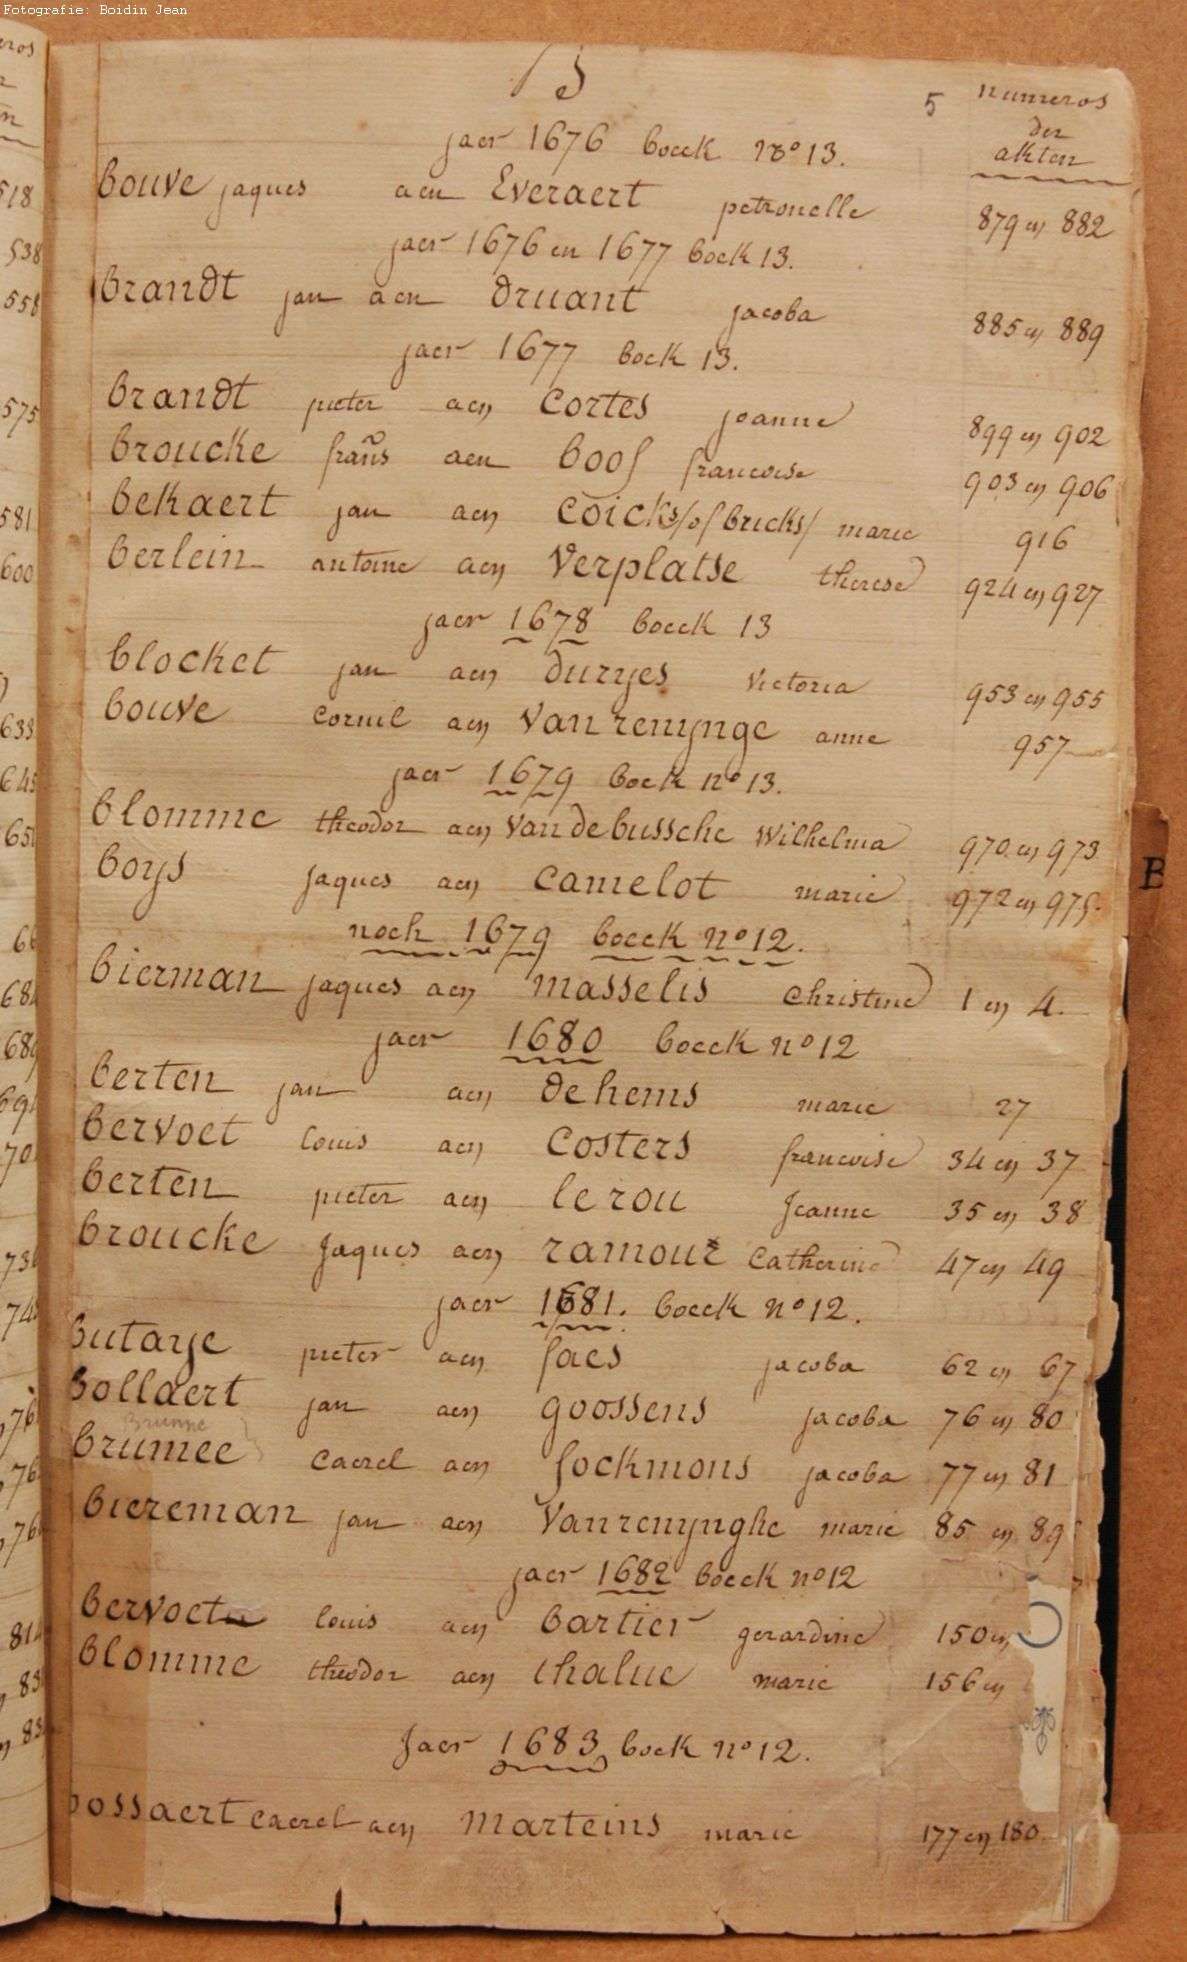 Fotografie: Boidin Jean
B
5 numeros
der
akten
jaer 1676 boeck No 13.
bouve jaques aen Everaert petronelle 879 en 882
jaer 1676 en 1677 boek 13.
brandt jan aen druant jacoba 885 en 889
jaer 1677 boek 13.
brandt pieter aen cortes joanne 899 en 902
broucke frans aen boos francoise 903 en 906
bekaert jan aen coicks /of bricks/ marie 916
berlein antoine aen Verplatse therese 924 en 927
jaer 1678 boeck 13
blocket jan aen duryes victoria 953 en 955
bouve cornil aen Van renynge anne 957
jaer 1679 boek no 13.
blomme theodor aen Vandebussche Wilhelma 970 en 973
boys jaques aen camelot marie 972 en 975.
noch 1679 boeck no 12.
bierman jaques aen masselis christine 1 en 4.
jaer 1680 boeck no 12
berten jan aen dehems marie 27
bervoet louis aen costers francoise 34 en 37
berten pieter aen lerou Jeanne 35 en 38
broucke Jaques aen ramout Catherine 47 en 49
jaer 1681. boeck no 12.
butaye pieter aen faes jacoba 62 en 67
Bollaert jan aen goossens jacoba 76 en 80
Brunne
brumee caerel aen fockmons jacoba 77 en 81
biereman jan aen Vanrenynghe marie 85 en 89
jaer 1682 boeck no 12
bervoet louis aen bartier gerardine 150 en
blomme theodor aen thalue marie 156 en
Jaer 1683 boek no 12.
bossaert caerel aen marteins marie 177 en 180.
B